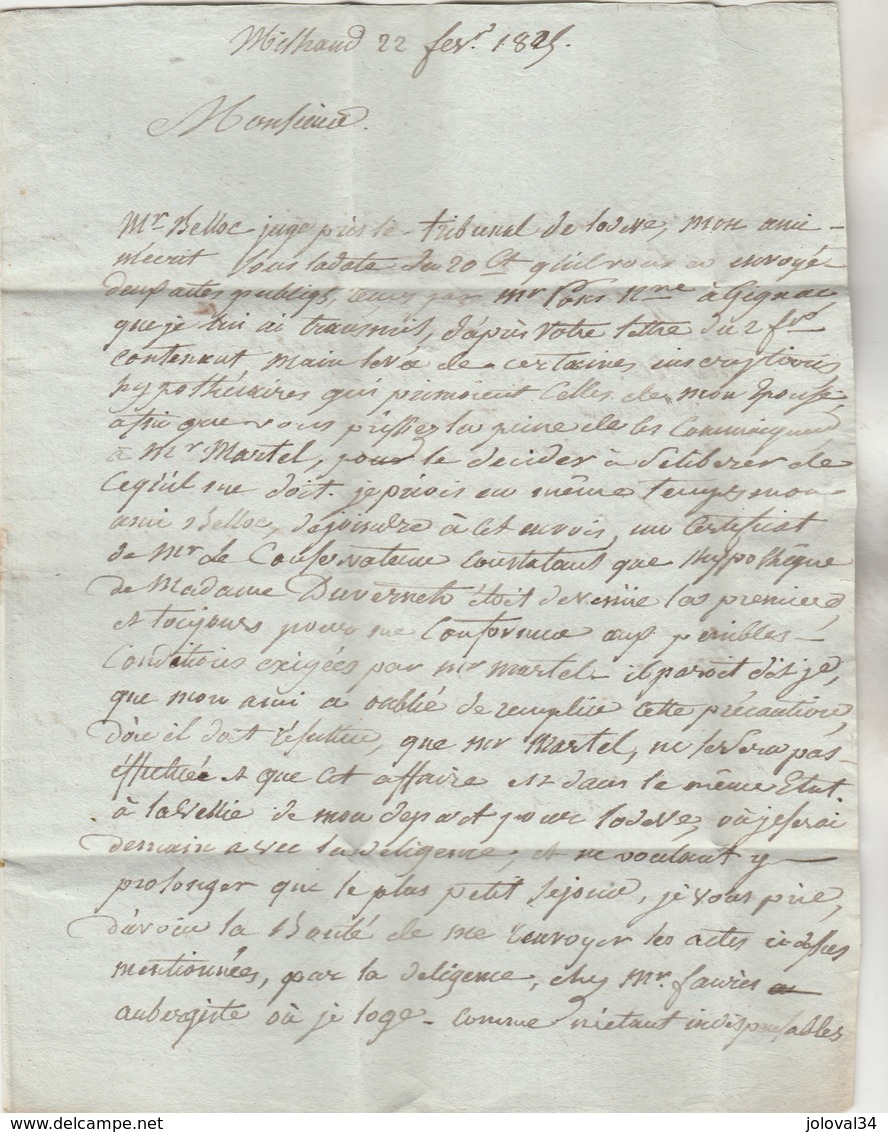 Milhaud 22 fevr. 1825.
Monsieur.
Mr Belloc juge près le tribunal de lodeve, mon ami
m'écrit sous la date du 20 Ct qu'il vous a envoyé
deux actes publiqs, reçus par mr Pons Nre à Gignac
que je lui ai transmis, d'après votre lettre du 2 fvr
contenant main levée de certaines inscriptions
hypothécaires qui primoient Celles de mon Epouse,
afin que vous prissiez la peine de les Communiquer
a Mr Martel, pour le decider à se liberer de
Cequ'il me doit. je priois en même temps mon
ami Belloc, de joindre à cet envoi, un Certificat
de Mr Le Conservateur Constatant que l'hypothèque
de Madame Duverneth étoit devenüe la premiere,
et toujours pour me Conformer aux penibles
Conditions exigées par mr martel. il paroit dis je,
que mon ami a oublié de remplir cette précaution,
d'où il doit résulter, que Mr Martel, ne sera pas
effectuée et que cet affaire est dans le même Etat.
à la veille de mon depart pour lodeve, où je serai
demain avec la deligence, et ne voulant y
prolonger que le plus petit sejour, je vous prie,
d'avoir la Bonté de me renvoyer les actes ci dessus
mentionnées, par la deligence, chez Mr. fauries
aubergiste où je loge. comme m'etant indispensables
joloval34